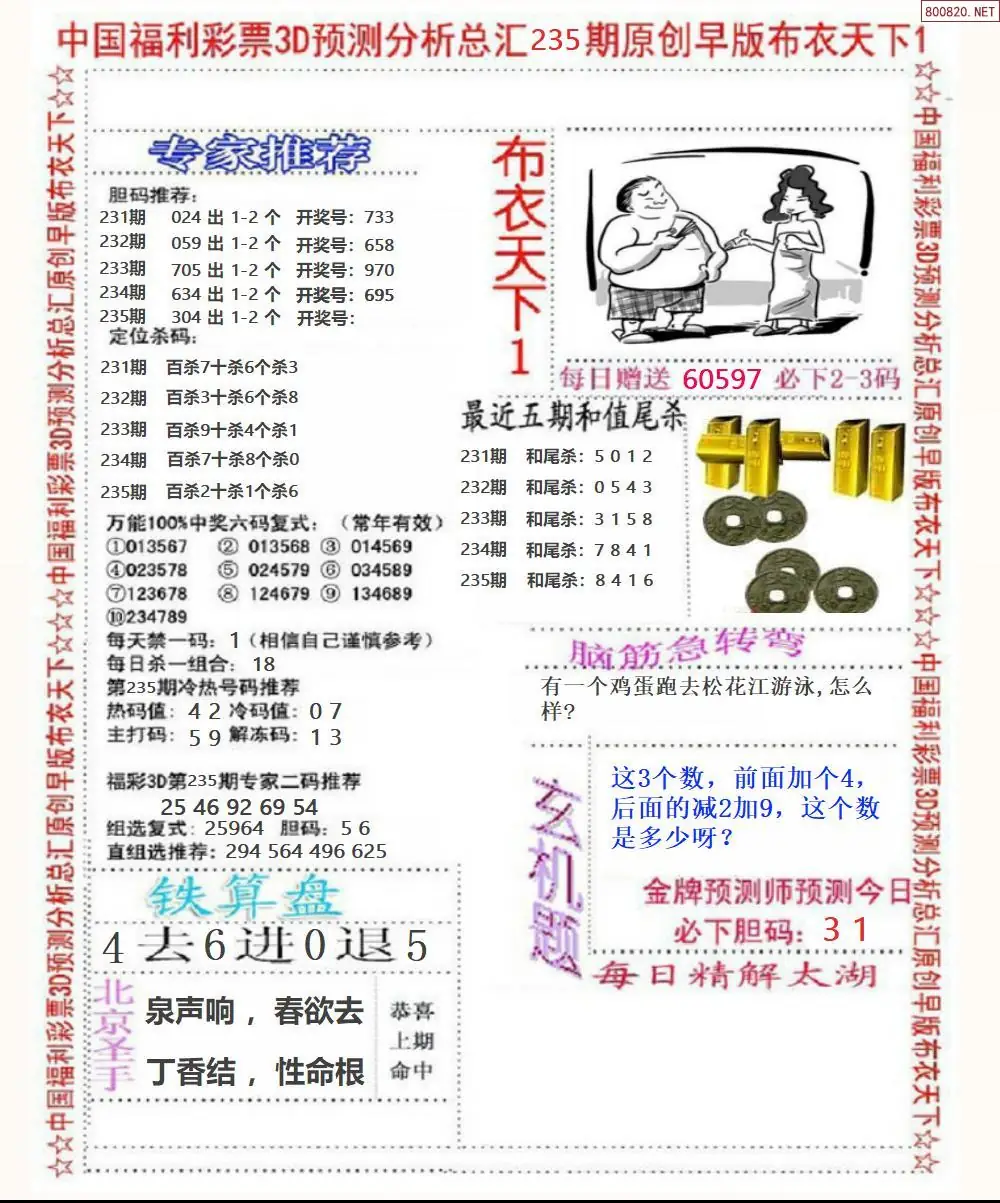 800820.NET
中国福利彩票3D预测分析总汇235期原创早版布衣天下1
☆☆中国福利彩票3D预测分析总汇原创早版布衣天下☆☆中国福利彩票3D预测分析总汇原创早版布衣天下☆☆
专家推荐
胆码推荐:
231期 024 出 1-2 个 开奖号: 733
232期 059 出 1-2 个 开奖号: 658
233期 705 出 1-2 个 开奖号: 970
234期 634 出 1-2 个 开奖号: 695
235期 304 出 1-2 个 开奖号:
定位杀码:
231期 百杀7十杀6个杀3
232期 百杀3十杀6个杀8
233期 百杀9十杀4个杀1
234期 百杀7十杀8个杀0
235期 百杀2十杀1个杀6
万能100%中奖六码复式: (常年有效)
①013567 ② 013568 ③ 014569
④023578 ⑤ 024579 ⑥ 034589
⑦123678 ⑧ 124679 ⑨ 134689
⑩234789
每天禁一码: 1(相信自己谨慎参考)
每日杀一组合: 18
第235期冷热号码推荐
热码值: 4 2 冷码值: 0 7
主打码: 5 9 解冻码: 1 3
福彩3D第235期专家二码推荐
25 46 92 69 54
组选复式: 25964 胆码: 5 6
直组选推荐: 294 564 496 625
铁算盘
4去6进0退5
北京圣手
泉声响，春欲去
丁香结，性命根
恭喜
上期
命中
布衣天下1
每日赠送 60597 必下2-3码
最近五期和值尾杀
231期 和尾杀: 5 0 1 2
232期 和尾杀: 0 5 4 3
233期 和尾杀: 3 1 5 8
234期 和尾杀: 7 8 4 1
235期 和尾杀: 8 4 1 6
脑筋急转弯
有一个鸡蛋跑去松花江游泳,怎么
样?
玄机题
这3个数，前面加个4，
后面的减2加9，这个数
是多少呀？
金牌预测师预测今日
必下胆码: 3 1
每日精解太湖
☆☆中国福利彩票3D预测分析总汇原创早版布衣天下☆☆中国福利彩票3D预测分析总汇原创早版布衣天下☆☆